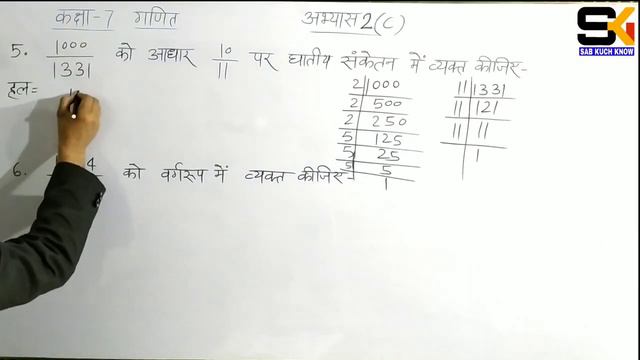 कक्षा-7 गणित
अभ्यास 2(C)
SK
SAB KUCH KNOW
5. 1000/1331 को आधार 10/11 पर घातीय संकेतन में व्यक्त कीजिए-
हल=
2 1000
2 500
2 250
5 125
5 25
5 5
1
11 1331
11 121
11 11
1
6. 4 को वर्गरूप में व्यक्त कीजिए-